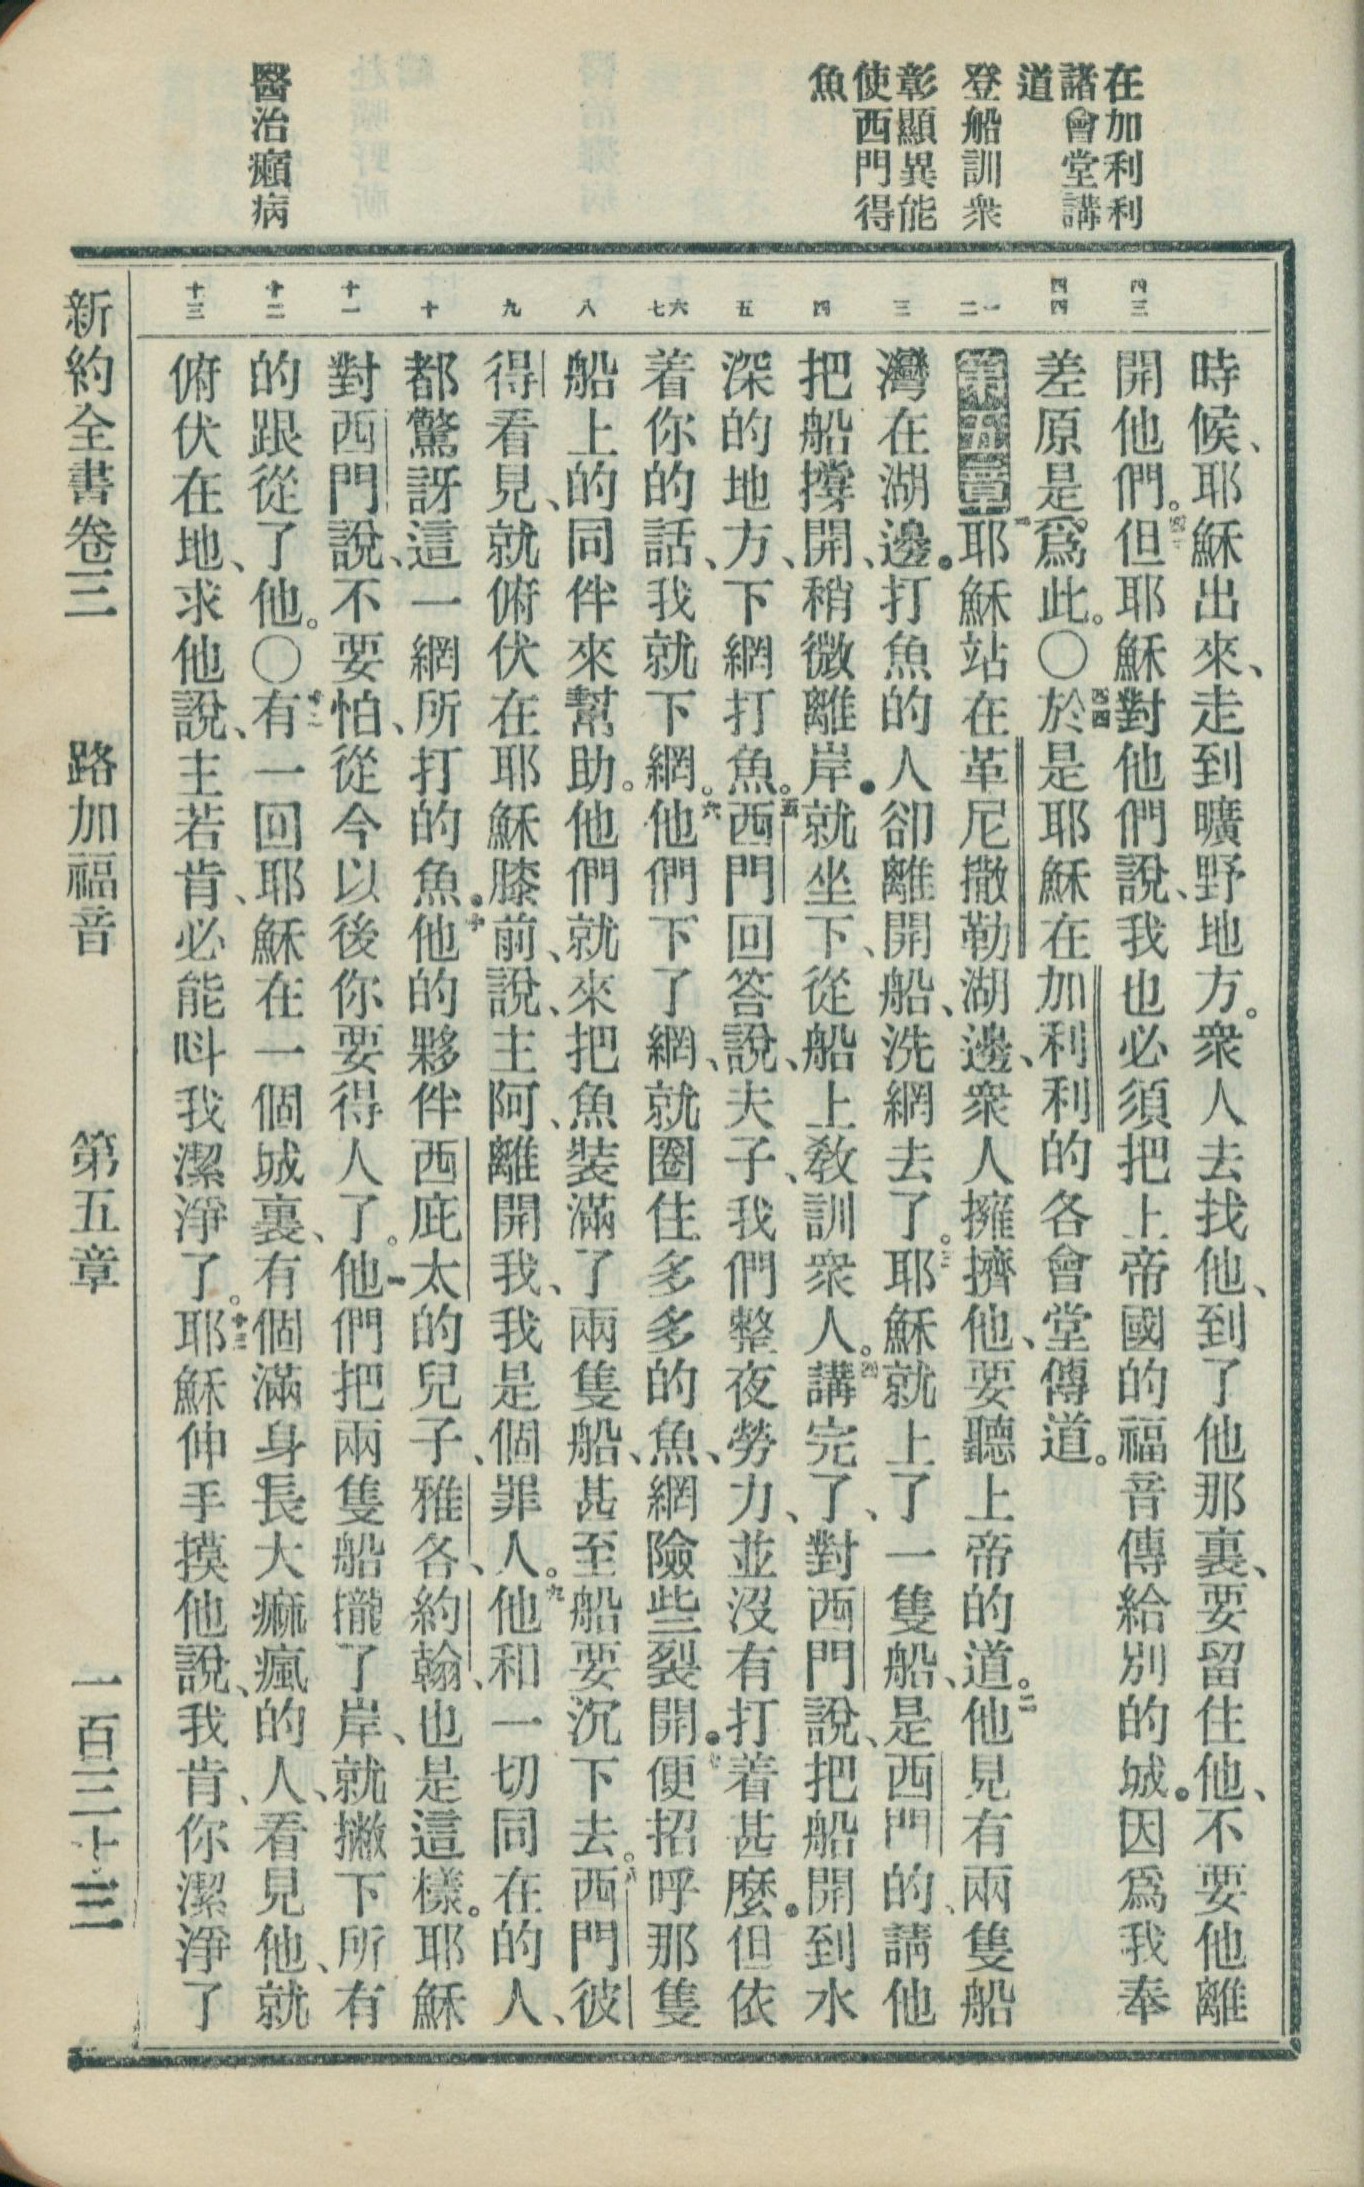 在加利利
諸會堂講
道
登船訓衆
彰顯異能
使西門得
魚
醫治癩病
四三
四四
一
二
三
四
五
六
七
八
九
十
十一
十二
十三
時候、耶穌出來、走到曠野地方。衆人去找他、到了他那裏、要留住他、不要他離
開他們。四三但耶穌對他們說、我也必須把上帝國的福音傳給別的城。因爲我奉
差原是爲此。〇四四於是耶穌在加利利的各會堂傳道。
第五章一耶穌站在革尼撒勒湖邊、衆人擁擠他、要聽上帝的道。二他見有兩隻船
灣在湖邊。打魚的人卻離開船、洗網去了。三耶穌就上了一隻船、是西門的、請他
把船撐開、稍微離岸。就坐下、從船上教訓衆人。四講完了、對西門說、把船開到水
深的地方、下網打魚。五西門回答說、夫子、我們整夜勞力、並沒有打着甚麼。但依
着你的話、我就下網。六他們下了網、就圈住多多的魚、網險些裂開。七便招呼那隻
船上的同伴來幫助。他們就來把魚裝滿了兩隻船、甚至船要沉下去。八西門彼
得看見、就俯伏在耶穌膝前、說、主阿、離開我、我是個罪人。九他和一切同在的人、
都驚訝這一網所打的魚。十他的夥伴西庇太的兒子、雅各、約翰、也是這樣。耶穌
對西門說、不要怕、從今以後你要得人了。十一他們把兩隻船攏了岸、就撇下所有
的跟從了他。〇十二有一回耶穌在一個城裏、有個滿身長大痲瘋的人、看見他、就
俯伏在地、求他說、主若肯、必能呌我潔淨了。十三耶穌伸手摸他說、我肯、你潔淨了
新約全書卷三 路加福音 第五章 一百三十三